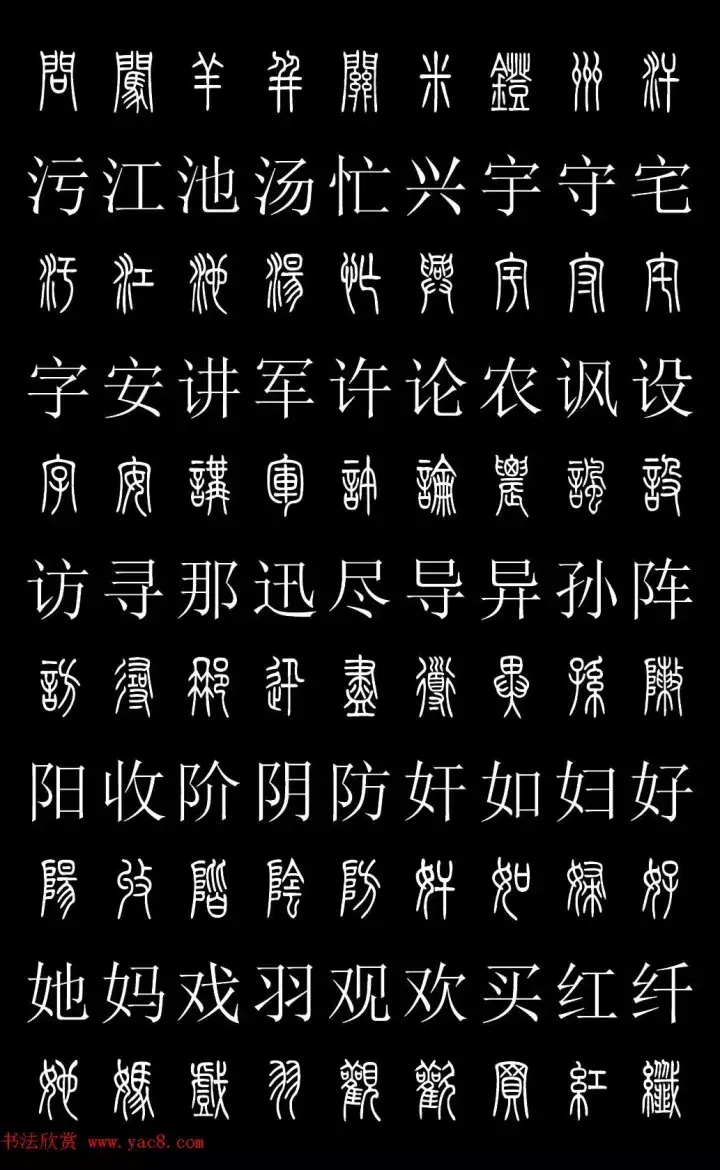 問 闖 羊 并 關 米 鐙 州 汗
污 江 池 汤 忙 兴 宇 守 宅
汙 江 池 湯 忙 興 宇 守 宅
字 安 讲 军 许 论 农 讽 设
字 安 講 軍 許 論 農 諷 設
访 寻 那 迅 尽 导 异 孙 阵
訪 尋 那 迅 盡 導 異 孫 陳
阳 收 阶 阴 防 奸 如 妇 好
陽 收 階 陰 防 奸 如 婦 好
她 妈 戏 羽 观 欢 买 红 纤
她 媽 戲 羽 觀 歡 買 紅 纖
书法欣赏 www.yac8.com